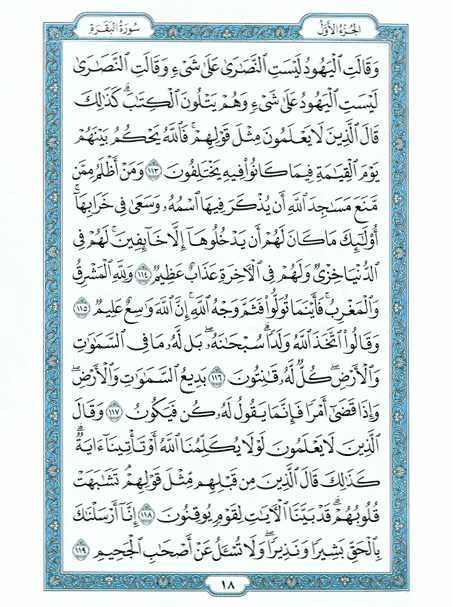 سُورَةُ البَقَرَةِ
الجُزْءُ الأَوَّلُ
وَقَالَتِ ٱلْيَهُودُ لَيْسَتِ ٱلنَّصَٰرَىٰ عَلَىٰ شَىْءٍ وَقَالَتِ ٱلنَّصَٰرَىٰ
لَيْسَتِ ٱلْيَهُودُ عَلَىٰ شَىْءٍ وَهُمْ يَتْلُونَ ٱلْكِتَٰبَۗ كَذَٰلِكَ
قَالَ ٱلَّذِينَ لَا يَعْلَمُونَ مِثْلَ قَوْلِهِمْۚ فَٱللَّهُ يَحْكُمُ بَيْنَهُمْ
يَوْمَ ٱلْقِيَٰمَةِ فِيمَا كَانُوا۟ فِيهِ يَخْتَلِفُونَ ١١٣ وَمَنْ أَظْلَمُ مِمَّن
مَّنَعَ مَسَٰجِدَ ٱللَّهِ أَن يُذْكَرَ فِيهَا ٱسْمُهُۥ وَسَعَىٰ فِى خَرَابِهَآۚ
أُو۟لَٰٓئِكَ مَا كَانَ لَهُمْ أَن يَدْخُلُوهَآ إِلَّا خَآئِفِينَۚ لَهُمْ فِى
ٱلدُّنْيَا خِزْىٌ وَلَهُمْ فِى ٱلْءَاخِرَةِ عَذَابٌ عَظِيمٌ ١١٤ وَلِلَّهِ ٱلْمَشْرِقُ
وَٱلْمَغْرِبُۚ فَأَيْنَمَا تُوَلُّوا۟ فَثَمَّ وَجْهُ ٱللَّهِۚ إِنَّ ٱللَّهَ وَٰسِعٌ عَلِيمٌ ١١٥
وَقَالُوا۟ ٱتَّخَذَ ٱللَّهُ وَلَدًاۗ سُبْحَٰنَهُۥۖ بَل لَّهُۥ مَا فِى ٱلسَّمَٰوَٰتِ
وَٱلْأَرْضِۖ كُلٌّ لَّهُۥ قَٰنِتُونَ ١١٦ بَدِيعُ ٱلسَّمَٰوَٰتِ وَٱلْأَرْضِۖ
وَإِذَا قَضَىٰٓ أَمْرًا فَإِنَّمَا يَقُولُ لَهُۥ كُن فَيَكُونُ ١١٧ وَقَالَ
ٱلَّذِينَ لَا يَعْلَمُونَ لَوْلَا يُكَلِّمُنَا ٱللَّهُ أَوْ تَأْتِينَآ ءَايَةٌۗ
كَذَٰلِكَ قَالَ ٱلَّذِينَ مِن قَبْلِهِم مِّثْلَ قَوْلِهِمْۘ تَشَٰبَهَتْ
قُلُوبُهُمْۗ قَدْ بَيَّنَّا ٱلْءَايَٰتِ لِقَوْمٍ يُوقِنُونَ ١١٨ إِنَّآ أَرْسَلْنَٰكَ
بِٱلْحَقِّ بَشِيرًا وَنَذِيرًاۖ وَلَا تُسْـَٔلُ عَنْ أَصْحَٰبِ ٱلْجَحِيمِ ١١٩
١٨